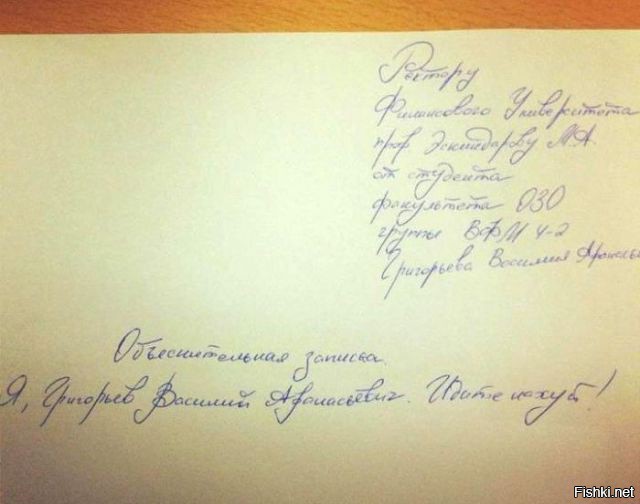 Ректору
Финансового Университета
проф Эскиндарову М.А.
от студента
факультета ОЗО
группы ВФМ 4-2
Григорьева Василия Афанасье
Объеснительная записка.
Я, Григорьев Василий Афанасьевич. Идите нахуй!
Fishki.net